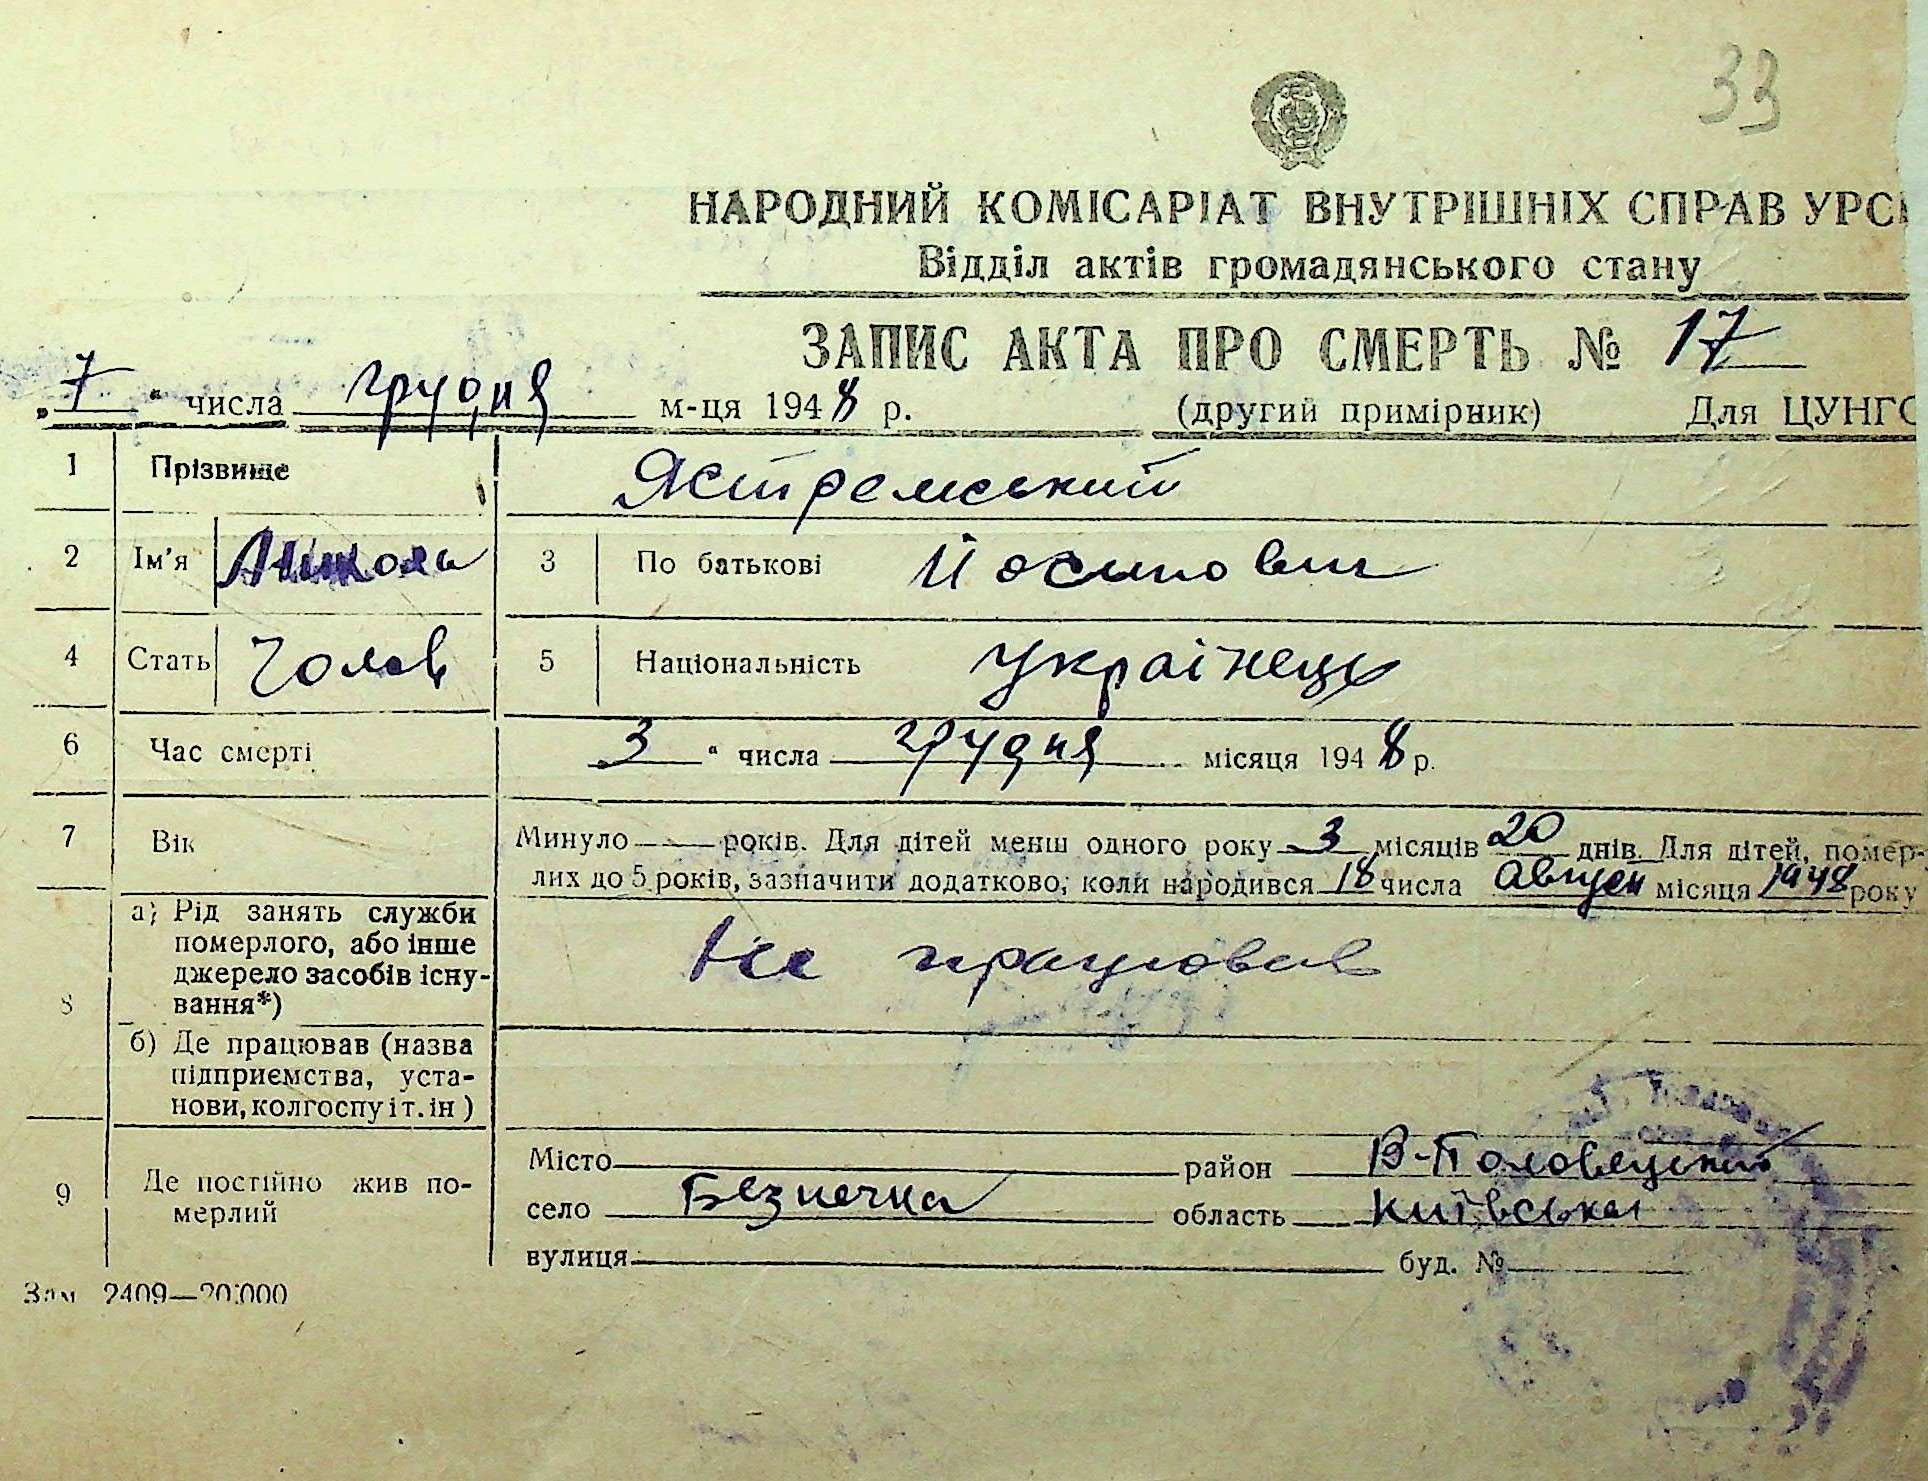 33
НАРОДНИЙ КОМІСАРІАТ ВНУТРІШНІХ СПРАВ УРСР
Відділ актів громадянського стану
ЗАПИС АКТА ПРО СМЕРТЬ № 17
„ 7 “ числа грудня м-ця 1948 р. (другий примірник) Для ЦУНГО
1 Прізвище Ястремський
2 Ім'я Микола 3 По батькові Йосипович
4 Стать Чолов 5 Національність Українець
6 Час смерті 3 “ числа грудня місяця 1948 р.
7 Вік Минуло — років. Для дітей менш одного року 3 місяців 20 днів. Для дітей, помер-
лих до 5 років, зазначити додатково, коли народився 18 числа Август місяця 1948 року
8 а) Рід занять служби
померлого, або інше
джерело засобів існу-
вання*)
Не працював
б) Де працював (назва
підприємства, уста-
нови, колгоспу і т. ін)
9 Де постійно жив по-
мерлий
Місто район В-Половецький
село Безпечна область Київська
вулиця буд. №
Зам 2409—20.000